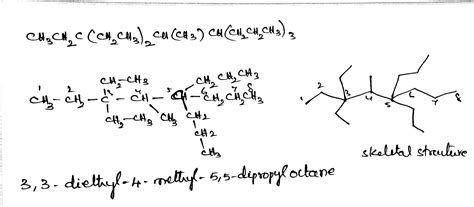 CH3CH2C(CH2CH3)2CH(CH3)CH(CH2CH2CH3)3
CH2-CH3 CH2CH2CH3
1 2 3 4 5 6 7 8
CH3-CH2-C-CH-CH-CH2CH2CH3
CH2-CH3 CH3 CH2
CH2
CH3
2 3 4 5 6 7 8
skeletal structure
3,3-diethyl-4-methyl-5,5-dipropyl octane